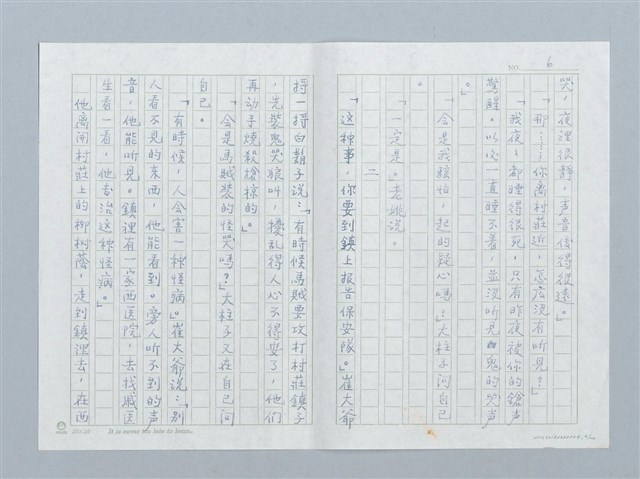 NO. 6
哭，夜裡很靜，声音傳得很遠。」
「那……你离村莊近，怎庅没有听見？」
「我夜夜都睡得很死，只有昨夜被你的鎗声
驚醒。以後一直睡不着，並沒听見鬼的哭声
。」
「会是我膽怕，起的疑心嗎？」大柱子问自己
。
「一定是。」老姚说。
二
「这种事，你要到鎮上报告保安隊。」崔大爷
捋一捋白鬍子说：「有時候馬賊要攻打村莊鎮子
，先裝鬼哭狼叫，擾乱得人心不得安了，他们
再动手燒殺搶掠的。」
「会是馬賊裝的怪哭嗎？」大柱子又在自己问
自己。
「有時候，人会害一种怪病。」崔大爷说：「别
人看不見的东西，他能看到。旁人听不到的声
音，他能听見。鎮裡有一家西医院，去找臧医
生看一看，他会治这种怪病。」
他离闭村莊上的柳树蔭，走到鎮裡去，在西
It is never too late to learn.